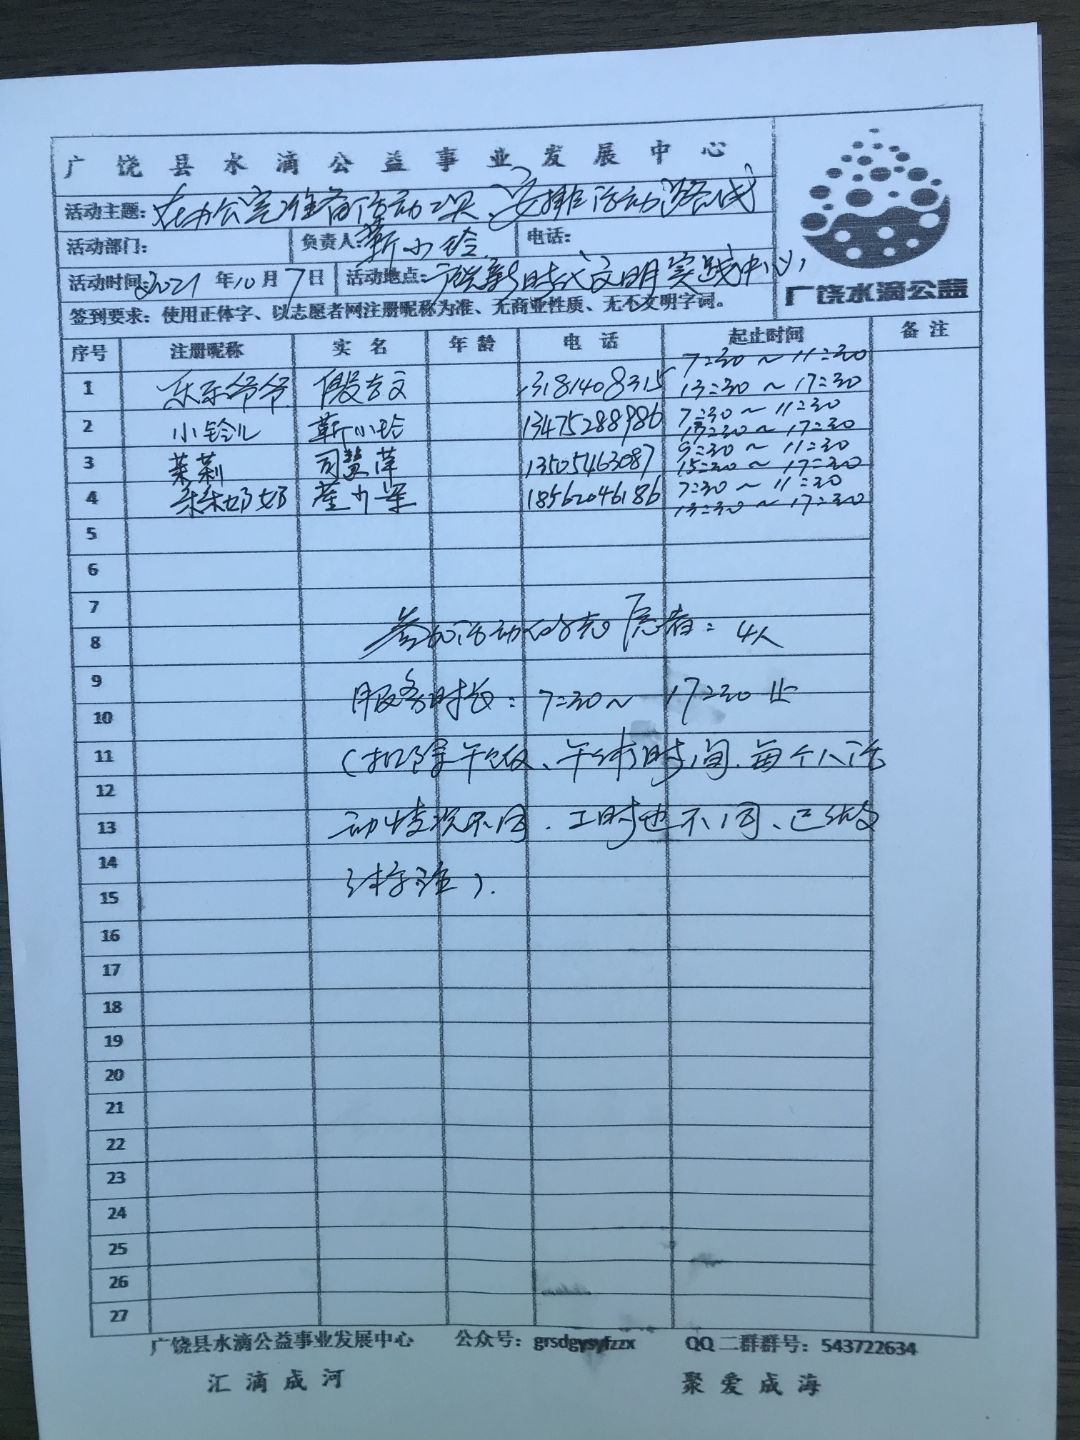 广饶县水滴公益事业发展中心
活动主题：在办公室准备活动 安排活动路线
活动部门： 负责人：靳小玲 电话：
活动时间：2021年10月7日 活动地点：广饶新时代文明实践中心
广饶水滴公益
签到要求：使用正体字、以志愿者网注册昵称为准、无商业性质、无不文明字词。
序号 注册昵称 实名 年龄 电话 起止时间 备注
7:30～11:30
1 乐乐爷爷 文 13181408315 13:30～17:30
2 小铃儿 靳小玲 13475288986 7:30～11:30
13:30～17:30
3 茉莉 司慧萍 13505463087 9:30～11:30
15:30～17:30
4 奶奶 18562046186 7:30～11:30
13:30～17:30
5
6
7
8 参加活动的志愿者：4人
9
10 服务时长：7:30～17:30止
11 （扣除午饭、午休时间、每个人活
12
13 动情况不同、工时也不同、已
14
15
16
17
18
19
20
21
22
23
24
25
26
27
广饶县水滴公益事业发展中心 公众号：grsdgysyfzzx QQ二群群号：543722634
汇滴成河 聚爱成海